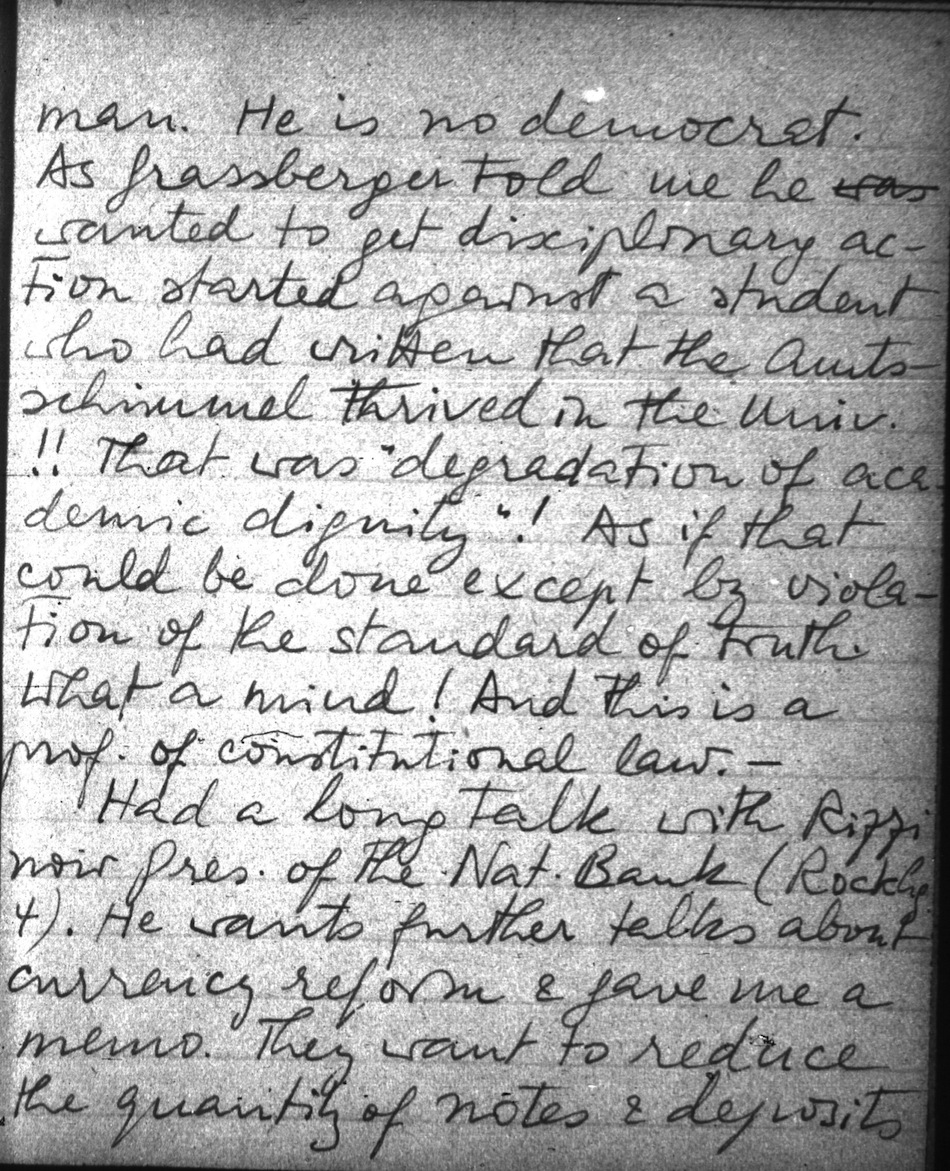 man. He is no democrat.
As Grassberger told me he was
wanted to get disciplinary ac-
tion started against a student
who had written that the Amts-
schimmel thrived in the Univ.
!! That was "degradation of aca-
demic dignity"! As if that
could be done except by viola-
tion of the standard of truth.
What a mind! And this is a
prof. of constitutional law. —
Had a long talk with Rizzi
now Pres. of the Nat. Bank (Rockhg.
4). He wants further talks about
currency reform & gave me a
memo. They want to reduce
the quantity of notes & deposits